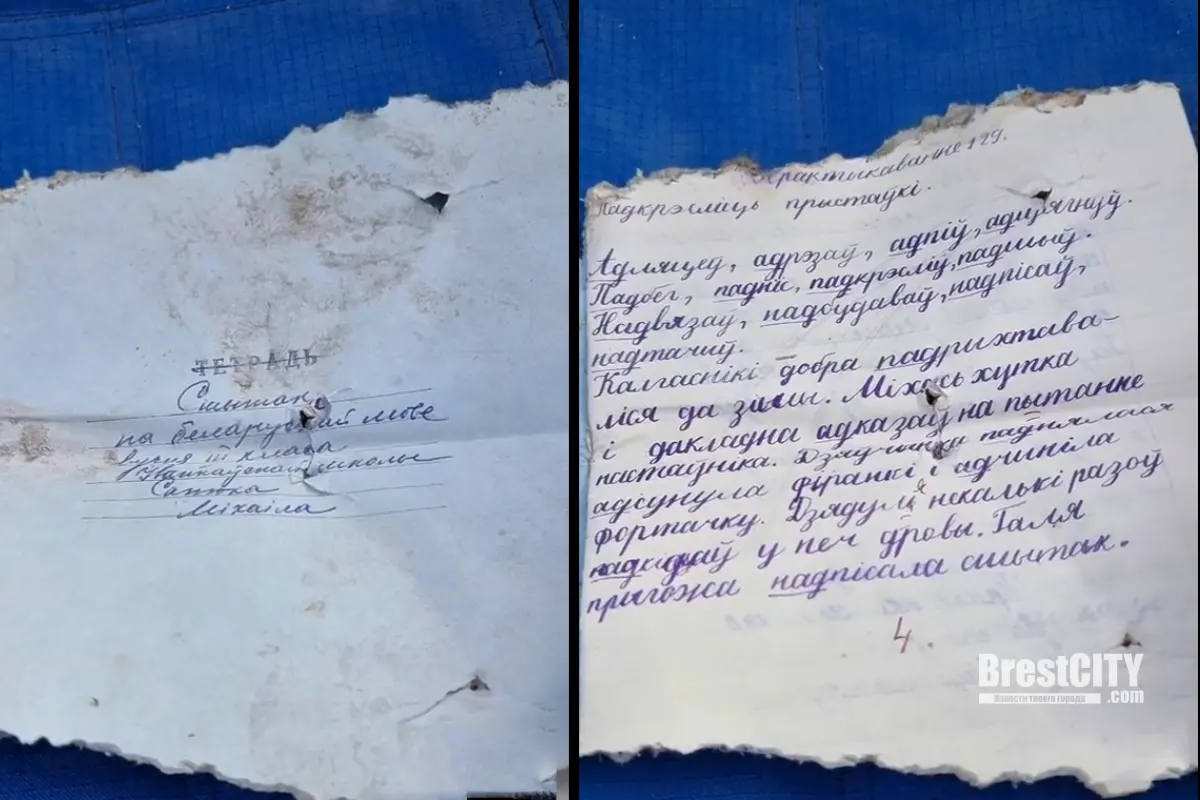 ТЕТРАДЬ
Сшытак
па беларускай мове
вучня III класа
школы
Міхаіла
Практикаванне 129.
Падкрэсліць прыстаўкі.
Адляцед, адрэзаў, адпіў, адцягнуў.
Падбег, падніс, падкрэсліў, падшыў.
Надвязаў, надбудаваў, надпісаў,
надтачыў.
Калгаснікі добра падрыхтава-
ліся да зимы. Міхась хутка
і дакладна адказаў на пытанне
настаўніка. Дзяўчынка паднялася
адсунула фіранкі і адчиніла
фортачку. Дзядуля некалькі разоў
падкідаў у печ дровы. Галя
прыгожа надпісала сшытак.
4.
BrestCITY
Новости твоего города
.com